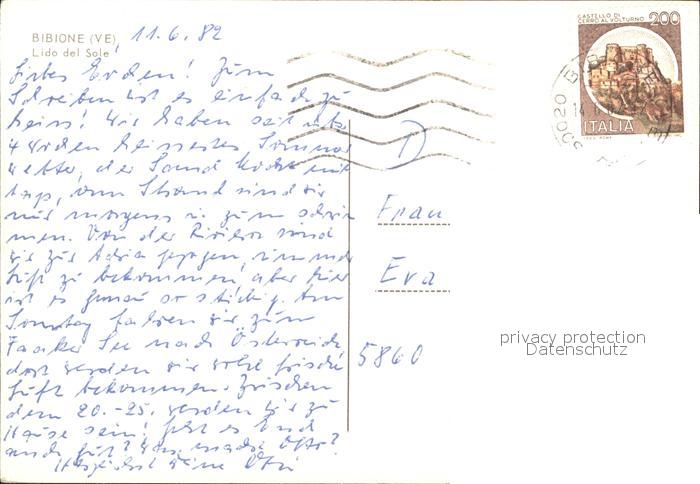 BIBIONE (VE)
Lido del Sole
11.6.82
Zum
Schreiben ist es einfach zu
heiss! Wir haben seit
4 Wochen heissestes Sommer
wetter, der Sand kocht
am Strand sind wir
nur morgens u. zum schwim
men. Von der Riviera sind
wir zur Adria gezogen, um mehr
Luft zu bekommen, aber hier
ist es genau so stickig. Am
Sonntag fahren wir zum
Faaker See nach Österreich
dort werden wir wohl frische
Luft bekommen. Zwischen
dem 20.-25. werden wir zu
Hause sein! Geht es Euch
auch gut? Was macht
Herzlichst
CASTELLO DI
CERRO AL VOLTURNO
200
ITALIA
D
Frau
Eva
5860
privacy protection
Datenschutz